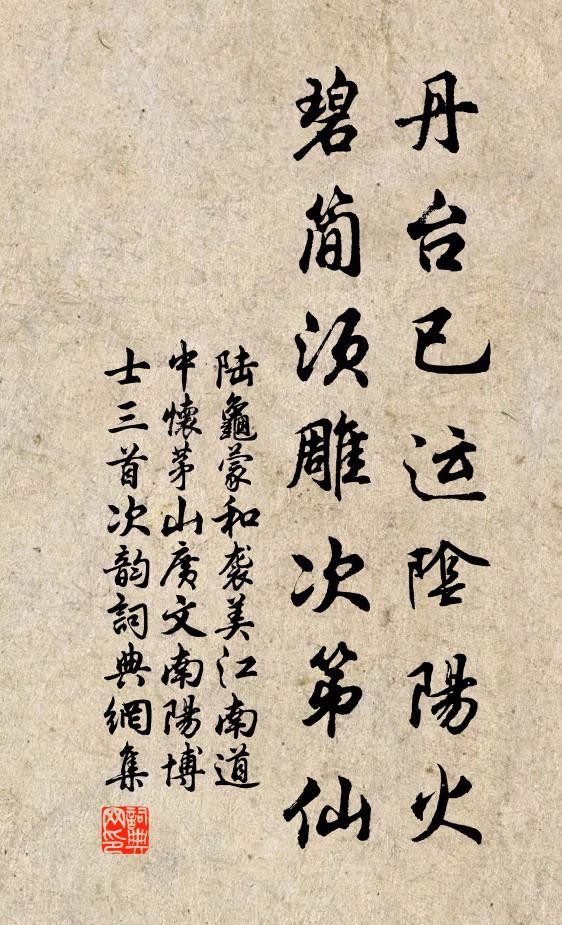 丹台已运陰陽火
碧简须雕次第仙
陆龜蒙和袭美江南道
中懷茅山广文南陽博
士三首次韵詞典網集
詞典
网印